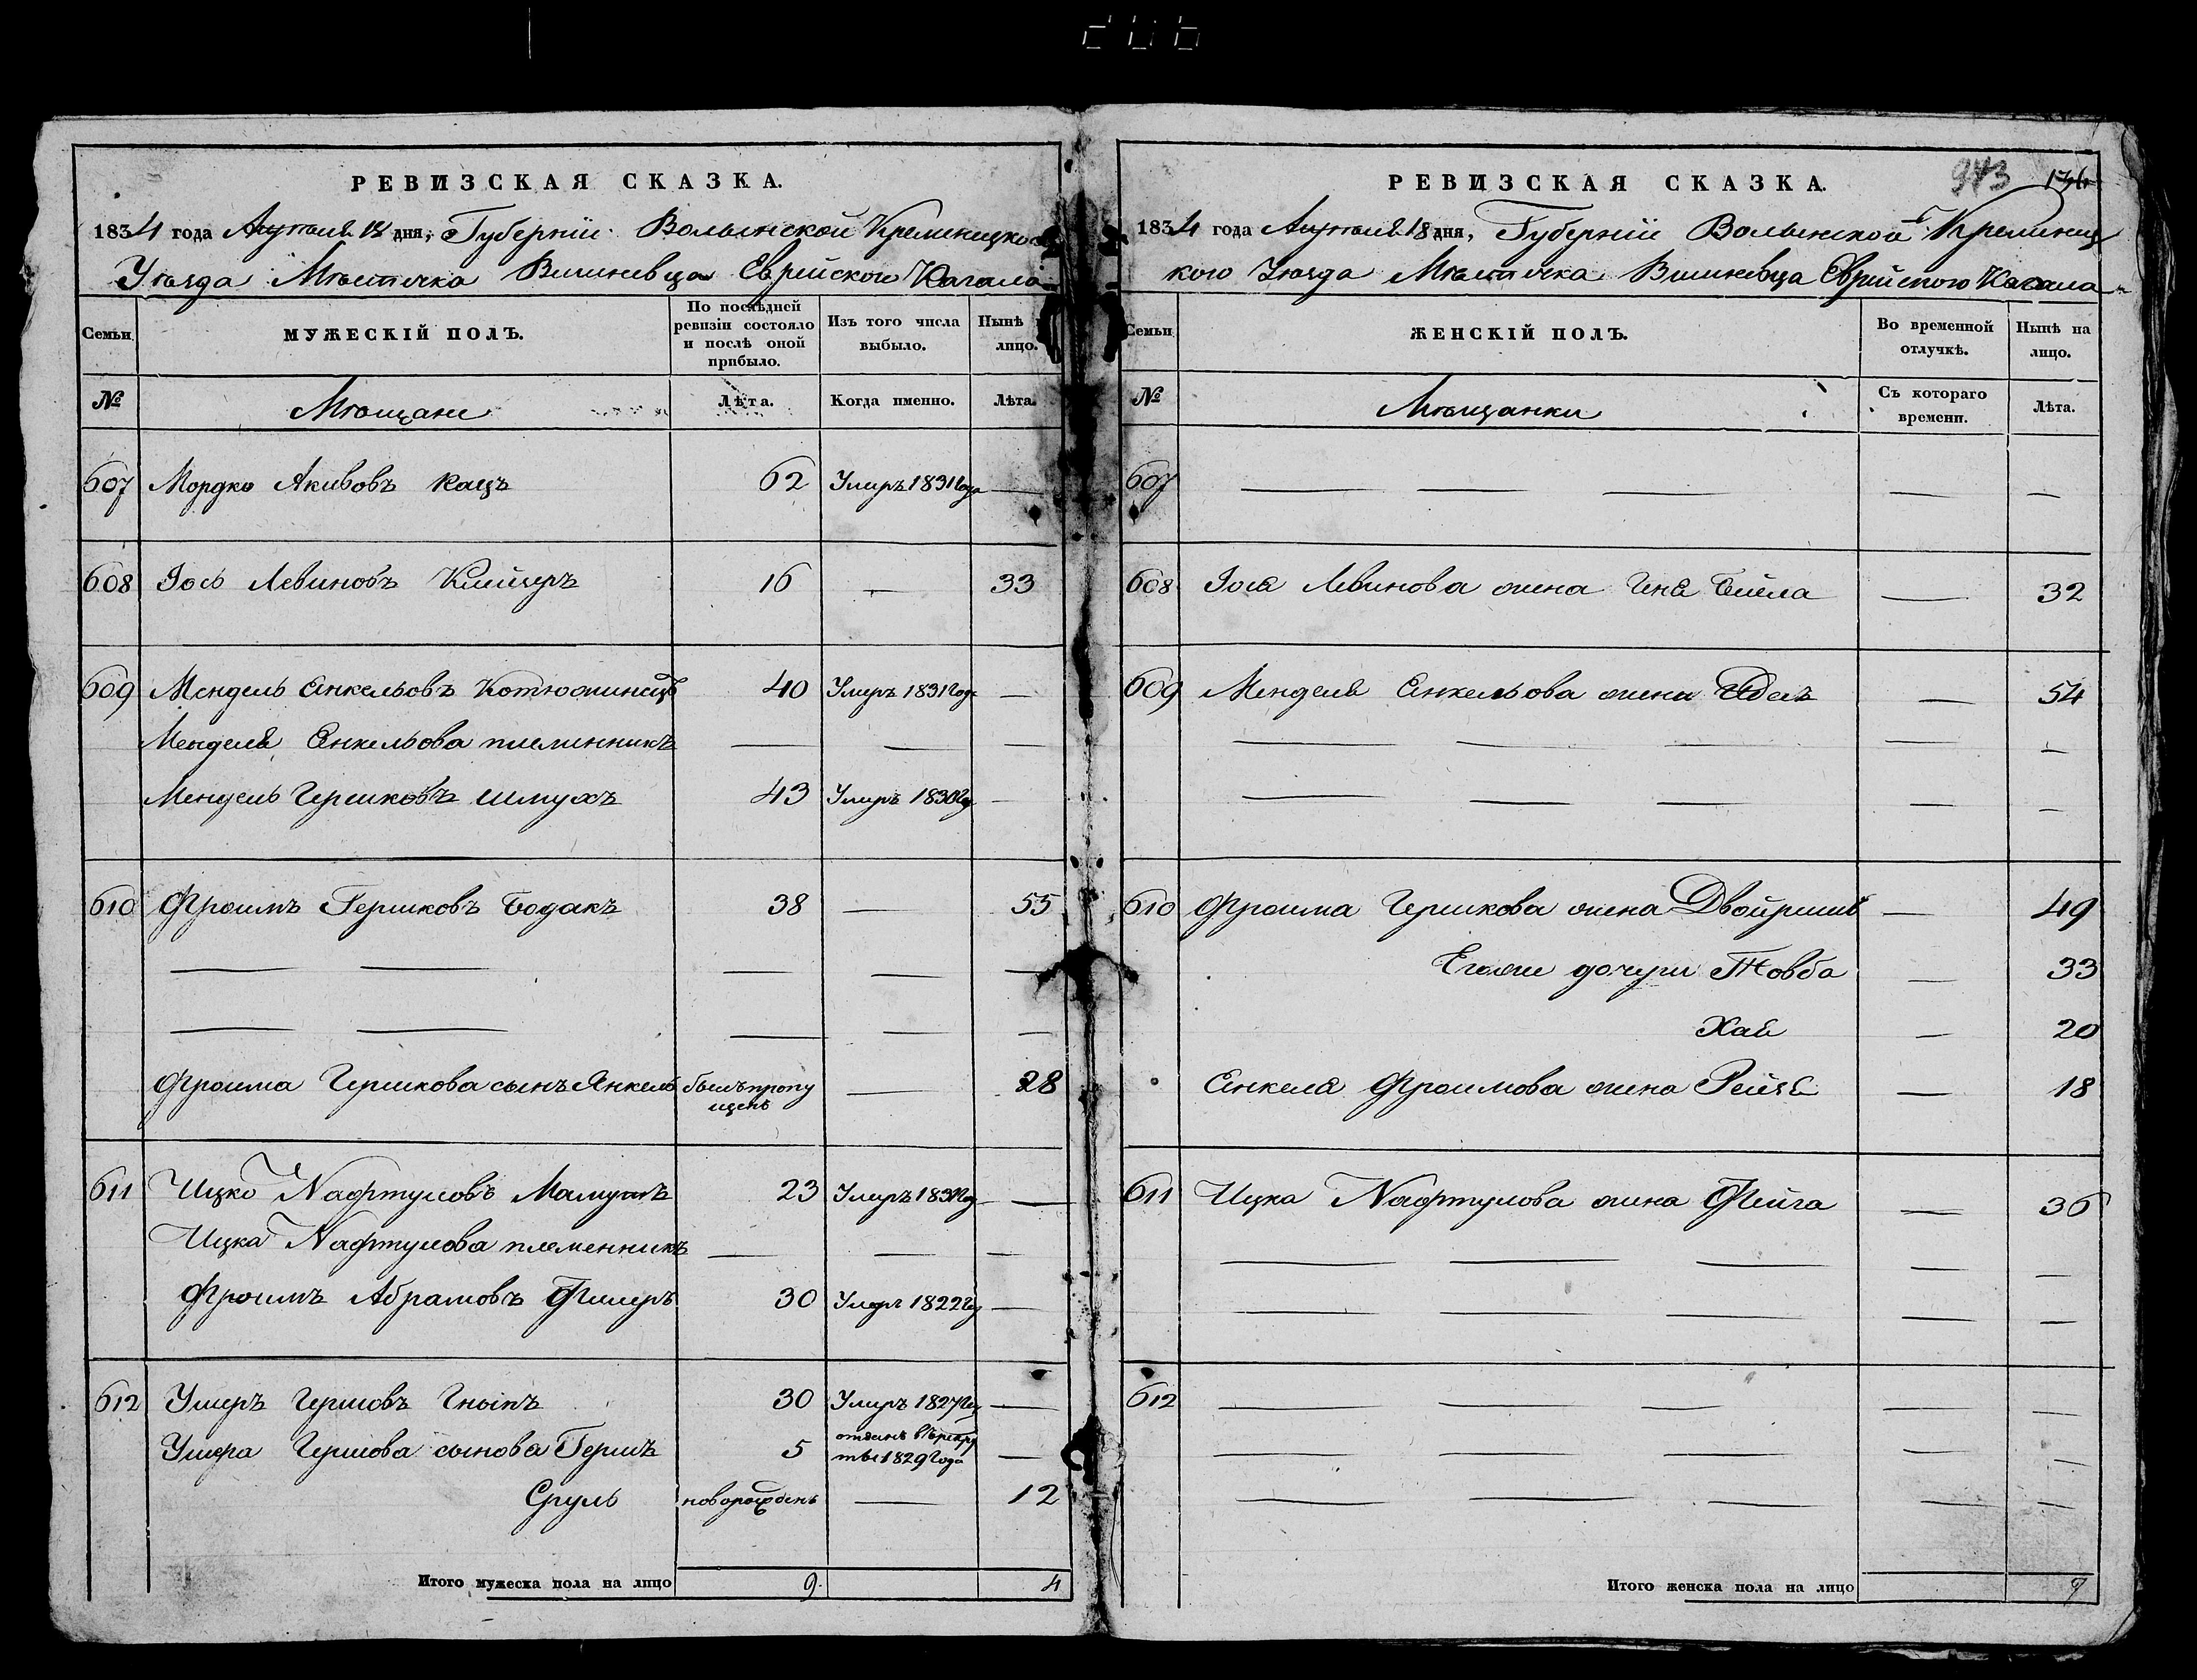 РЕВИЗСКАЯ СКАЗКА.
1834 года Апреля 18 дня, Губерніи Волынской Кременецкого
Уѣзда Мѣстечка Вишневца Еврейского Кагала
Семьи
МУЖЕСКІЙ ПОЛЪ.
По послѣдней ревизіи состояло и послѣ оной прибыло.
Изъ того числа выбыло.
Нынѣ лицо.
№
Мѣщане
Лѣта.
Когда именно.
Лѣта.
607 Мордко Акивовъ Кацъ 62 Умеръ 1831 года —
608 Іось Левиновъ 16 — 33
609 Мендель Енкельовъ 40 Умеръ 1831 год —
Менделя Енкельова племенникъ — — —
Мендель Гершковъ Шмукъ 43 Умеръ 1830 го —
610 Фроимъ Гершковъ Бодакъ 38 — 55
— — — — —
— — — — —
Фроима Гершкова сынъ Янкель былъ пропущенъ — 28
611 Ицко Нафтуловъ 23 Умеръ 1831 го —
Ицка Нафтулова племенникъ — — —
Фроимъ Абрамовъ Фишеръ 30 Умеръ 1822 го —
612 Ушеръ Гершовъ Гныпъ 30 Умеръ 1827 го —
Ушера Гершова сынова Гершъ 5 отданъ въ рекруты 1829 года —
Сруль новорожденъ — 12
Итого мужеска пола на лицо 9. 4
943 136
РЕВИЗСКАЯ СКАЗКА.
1834 года Апреля 18 дня, Губерніи Волынской Кременец
кого Уѣзда Мѣстечка Вишневца Еврейского Кагала
Семьи
ЖЕНСКІЙ ПОЛЪ.
Во временной отлучкѣ.
Нынѣ на лицо.
№
Мѣщанки
Съ котораго времени.
Лѣта.
607 — — — — —
608 Іося Левинова жена Бейла — 32
609 Менделя Енкельова жена — 54
— — — — —
— — — — —
610 Фроима Гершкова жена Двойра — 49
Егоже дочери Товба — 33
Хая — 20
Енкеля Фроимова жена Рейзя — 18
611 Ицка Нафтулова жена Фейга — 36
— — — — —
— — — — —
612 — — — — —
— — — — —
— — — — —
Итого женска пола на лицо